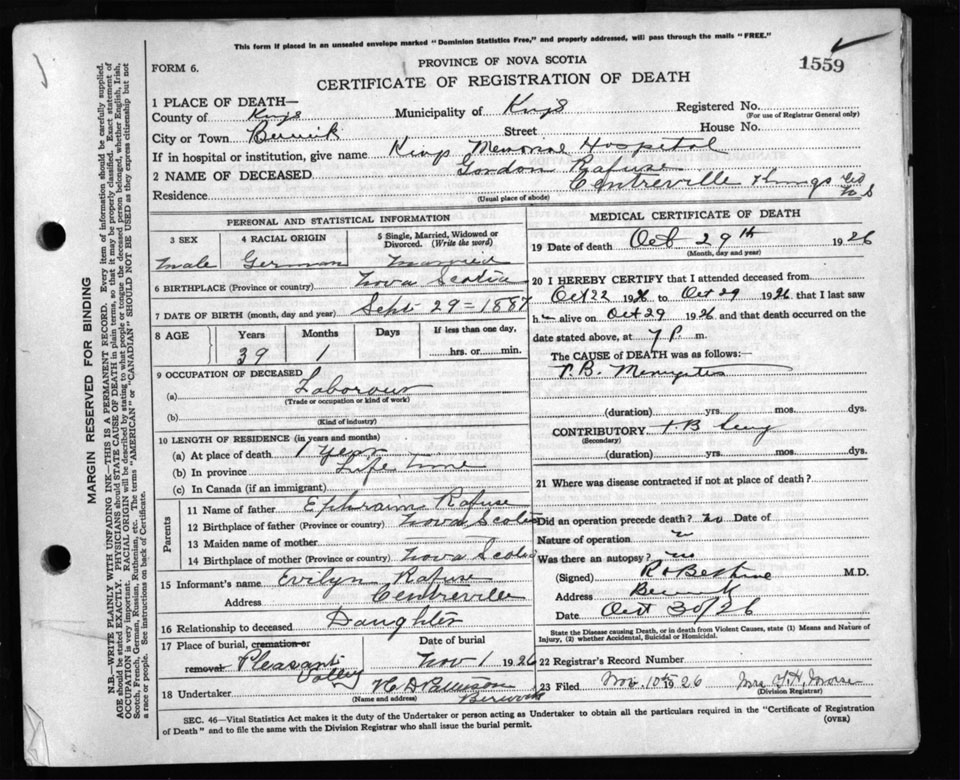 This form if placed in an unsealed envelope marked "Dominion Statistics Free," and properly addressed, will pass through the mails "FREE."
PROVINCE OF NOVA SCOTIA
FORM 6.
1559
CERTIFICATE OF REGISTRATION OF DEATH
MARGIN RESERVED FOR BINDING
N.B.—WRITE PLAINLY WITH UNFADING INK—THIS IS A PERMANENT RECORD. Every item of information should be carefully supplied.
AGE should be stated EXACTLY. PHYSICIANS should STATE CAUSE OF DEATH in plain terms, so that it may be properly classified. Exact statement of
OCCUPATION is very important. RACIAL ORIGIN will be described by stating to what people or tongue the deceased person belonged, whether English, Irish,
Scotch, French, German, Russian, Ruthenian, etc. The terms "AMERICAN" or "CANADIAN" SHOULD NOT BE USED as they express citizenship but not
a race or people. See instructions on back of Certificate.
1 PLACE OF DEATH—
County of Kings Municipality of Kings Registered No.
(For use of Registrar General only)
City or Town Berwick Street House No.
If in hospital or institution, give name Kings Memorial Hospital
2 NAME OF DECEASED Gordon Rafuse
Residence Centreville Kings Co N S
(Usual place of abode)
PERSONAL AND STATISTICAL INFORMATION
3 SEX 4 RACIAL ORIGIN 5 Single, Married, Widowed or Divorced. (Write the word)
male German married
6 BIRTHPLACE (Province or country) Nova Scotia
7 DATE OF BIRTH (month, day and year) Sept 29=1887
8 AGE Years Months Days If less than one day,
39 1 hrs. or min.
9 OCCUPATION OF DECEASED
(a) Laborour
(Trade or occupation or kind of work)
(b)
(Kind of industry)
10 LENGTH OF RESIDENCE (in years and months)
(a) At place of death 1 year
(b) In province Life time
(c) In Canada (if an immigrant)
Parents
11 Name of father Ephraim Rafuse
12 Birthplace of father (Province or country) Nova Scotia
13 Maiden name of mother
14 Birthplace of mother (Province or country) Nova Scotia
15 Informant's name Evilyn Rafuse
Address Centreville
16 Relationship to deceased Daughter
17 Place of burial, cremation or removal Pleasant Valley Date of burial Nov 1 1926
18 Undertaker
(Name and address) Berwick
MEDICAL CERTIFICATE OF DEATH
19 Date of death Oct 29th 1926
(Month, day and year)
20 I HEREBY CERTIFY that I attended deceased from
Oct 22 1926 to Oct 29 1926 that I last saw
h alive on Oct 29 1926 and that death occurred on the
date stated above, at 7 P. m.
The CAUSE of DEATH was as follows:—
T.B. Meningitis
(duration) yrs. mos. dys.
CONTRIBUTORY T.B. Lung
(Secondary)
(duration) yrs. mos. dys.
21 Where was disease contracted if not at place of death?
Did an operation precede death? no Date of
Nature of operation
Was there an autopsy? no
(Signed) M.D.
Address Berwick
Date Oct 30/26
State the Disease causing Death, or in death from Violent Causes, state (1) Means and Nature of
Injury, (2) whether Accidental, Suicidal or Homicidal.
22 Registrar's Record Number
23 Filed Nov. 10th 1926 Mrs Morse
(Division Registrar)
SEC. 46—Vital Statistics Act makes it the duty of the Undertaker or person acting as Undertaker to obtain all the particulars required in the "Certificate of Registration
of Death" and to file the same with the Division Registrar who shall issue the burial permit.
(OVER)